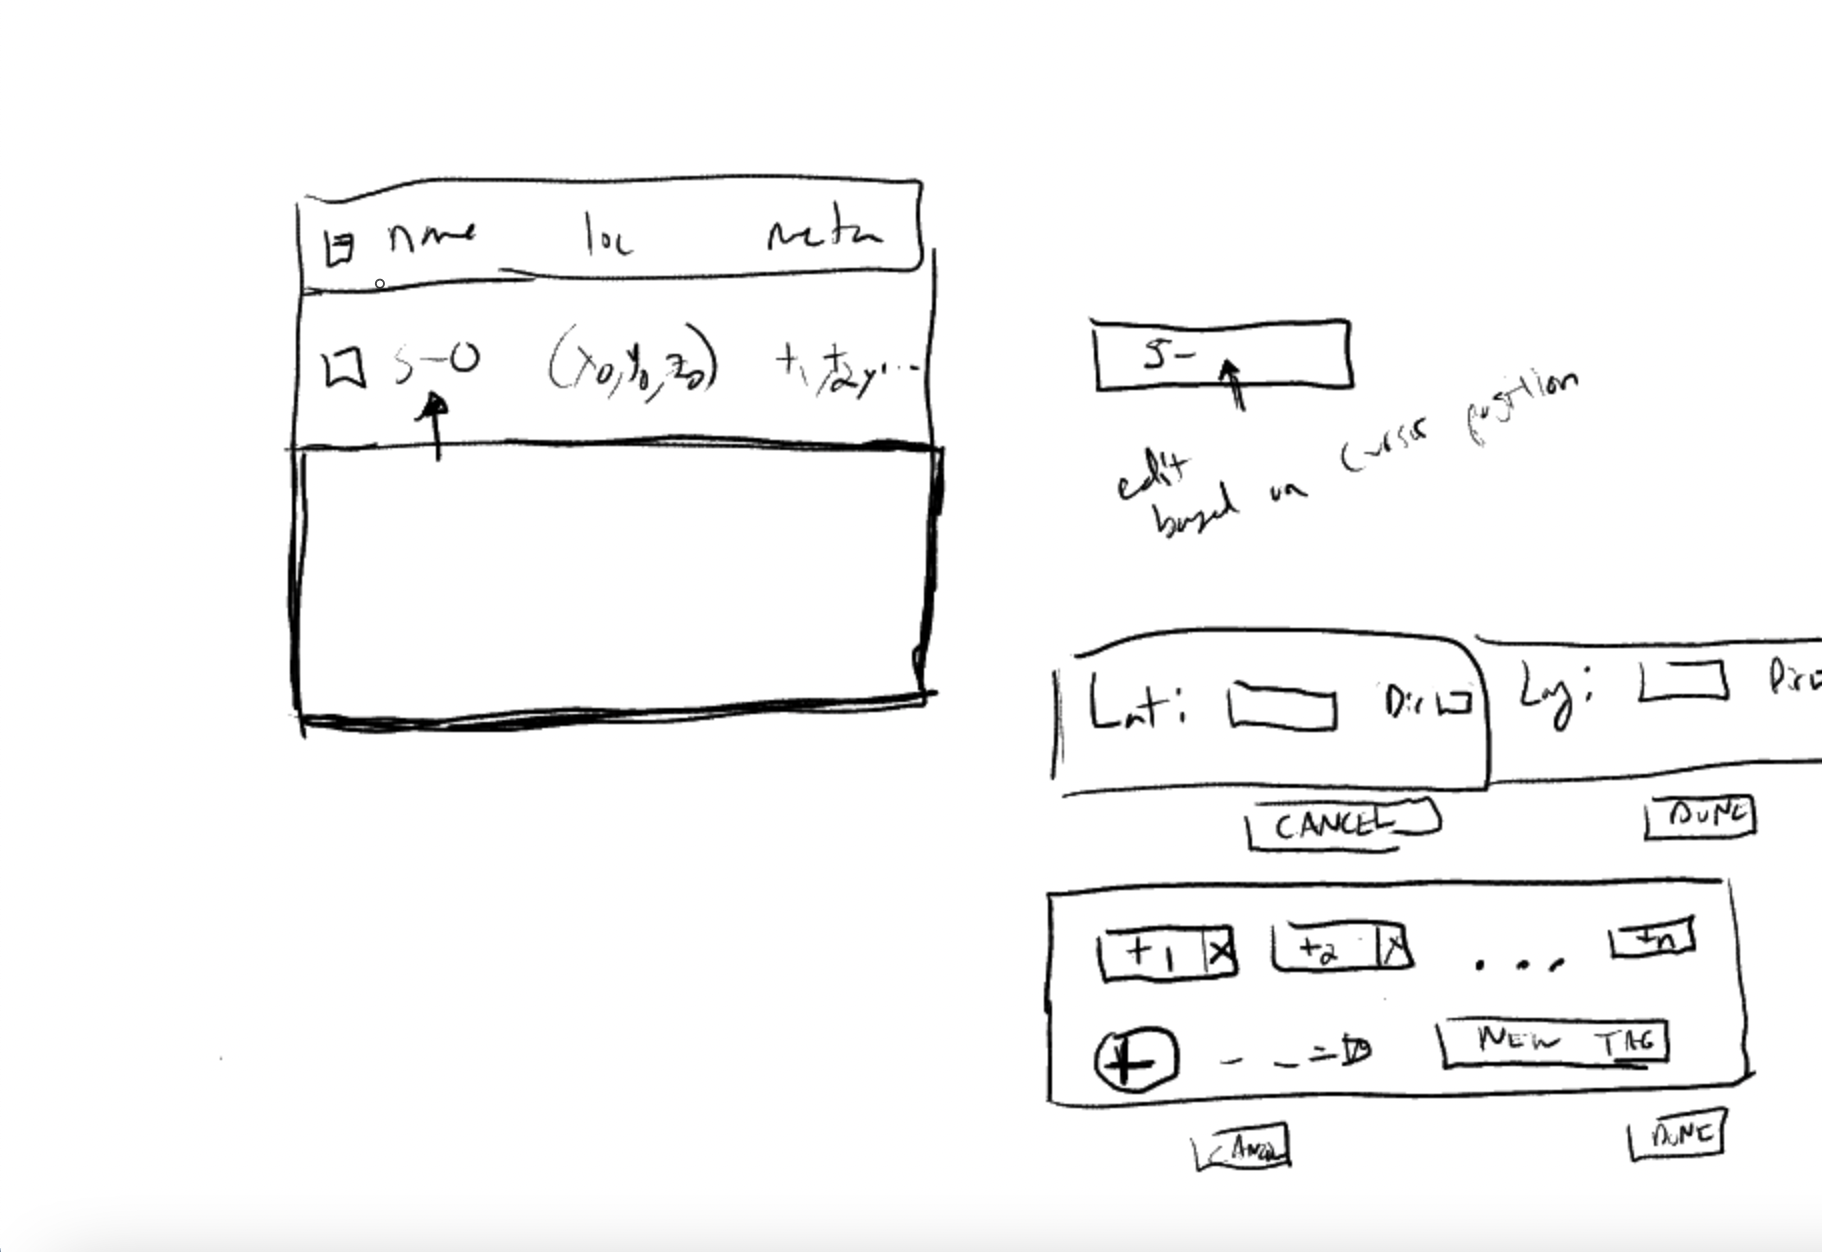 name loc meta
S-0 (x₀, y₀, z₀) t₁, t₂, ...
S-
edit
based on cursor position
Lat: Dir Lng: Dir
CANCEL DONE
t₁ X t₂ X ... tn
+ NEW TAG
CANCEL DONE